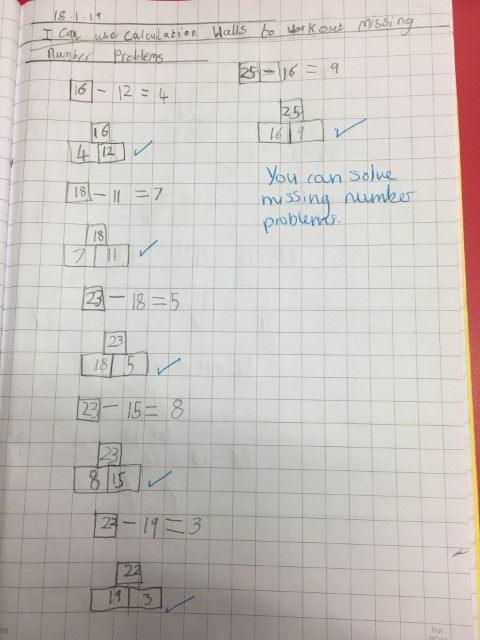 18.1.19
I Can use Calculation Walls to workout missing
Number Problems
16 - 12 = 4
16
4 12
18 - 11 = 7
18
7 11
23 - 18 = 5
23
18 5
23 - 15 = 8
23
8 15
22 - 19 = 3
22
19 3
25 - 16 = 9
25
16 9
You can solve
missing number
problems.